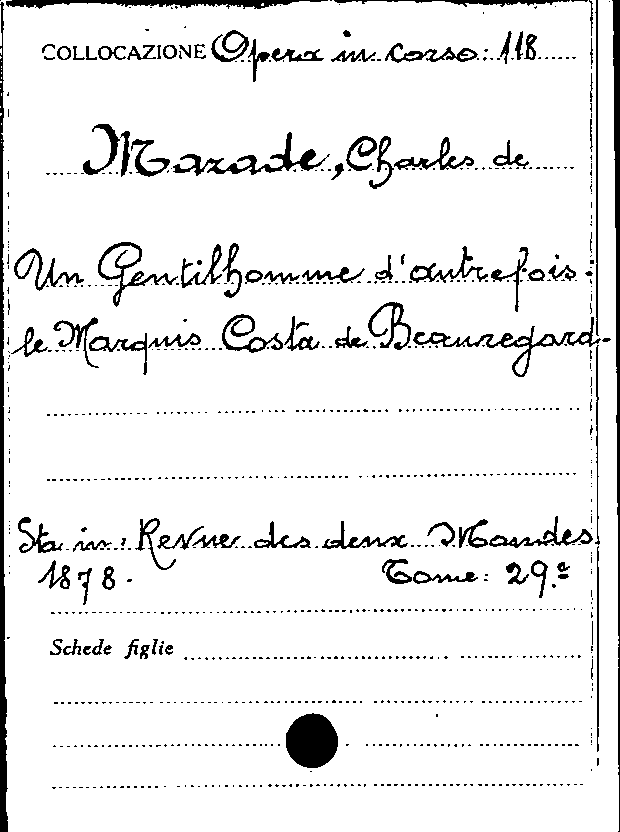 COLLOCAZIONE Opera in corso: 118
Mazade, Charles de
Un Gentilhomme d'autrefois:
le Marquis Costa de Beauregard.
Sta in: Revue des deux Mondes
1878. Tome: 29.e
Schede figlie